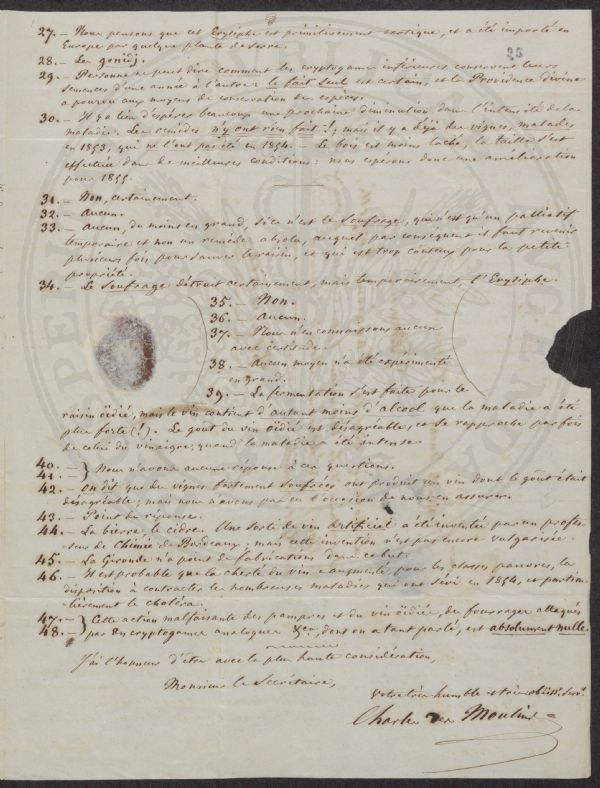 3
25
27. – Nous pensons que cet Erysiphe est primitivement exotique, et a été importé en
Europe par quelque plante de serre.
28. – Le gonidj.
29. – Personne ne peut dire comment les cryptogames inférieures conservent leurs
semences d'une année à l'autre: le fait seul est certain, et la Providence divine
a pourvu aux moyens de conservation des espèces.
30. – Il y a lieu d'espérer beaucoup une prochaine diminution dans l'intensité de la
maladie. Les remèdes n'y ont rien fait!; mais il y a déjà des vignes, malades
en 1853, qui ne l'ont pas été en 1854. – Le bois est moins taché, la taille s'est
effectuée dans de meilleures conditions: nous espérons donc une amélioration
pour 1855.
31. – Non, certainement.
32. – Aucun.
33. – Aucun, du moins en grand, si ce n'est le Soufrage, qui n'est qu'un palliatif
temporaire et non un remède absolu, auquel par conséquent il faut revenir
plusieurs fois pour sauver le raisin, et qui est trop coûteux pour la petite
propriété.
34. – Le Soufrage détruit certainement, mais temporairement, l'Erysiphe.
35. – Non.
36. – Aucun.
37. – Nous n'en connaissons aucun
avec certitude.
38. – Aucun moyen n'a été expérimenté
en grand.
39. – La fermentation s'est faite pour le
raisin oïdié, mais le vin contient d'autant moins d'alcool que la maladie a été
plus forte (!). Le goût du vin oïdié est désagréable, et se rapproche parfois
de celui du vinaigre, quand la maladie a été intense.
40. –
41. – } Nous n'avons aucune réponse à ces questions.
42. – On dit que des vignes fortement soufrées ont produit un vin dont le goût était
désagréable; mais nous n'avons pas eu l'occasion de nous en assurer.
43. – Point de réponse.
44. – La bierre, le cidre. Une sorte de vin artificiel a été inventée par un profes-
seur de Chimie de Bordeaux; mais cette invention n'est pas encore vulgarisée.
45. – La Gironde n'a point de fabrications dans ce but.
46. – Il est probable que la cherté du vin a augmenté, pour les classes pauvres, la
disposition à contracter les nombreuses maladies qui ont sévi en 1854, et particu-
lièrement le choléra.
47. – } Cette action malfaisante des pampres et du vin oïdiés, des fourrages attaqués
48. – par des cryptogames analogues &ca, dont on a tant parlé, est absolument nulle.
J'ai l'honneur d'être avec la plus haute considération,
Monsieur le Secrétaire,
votre très humble et très obéisst. servr.
Charles Des Moulins